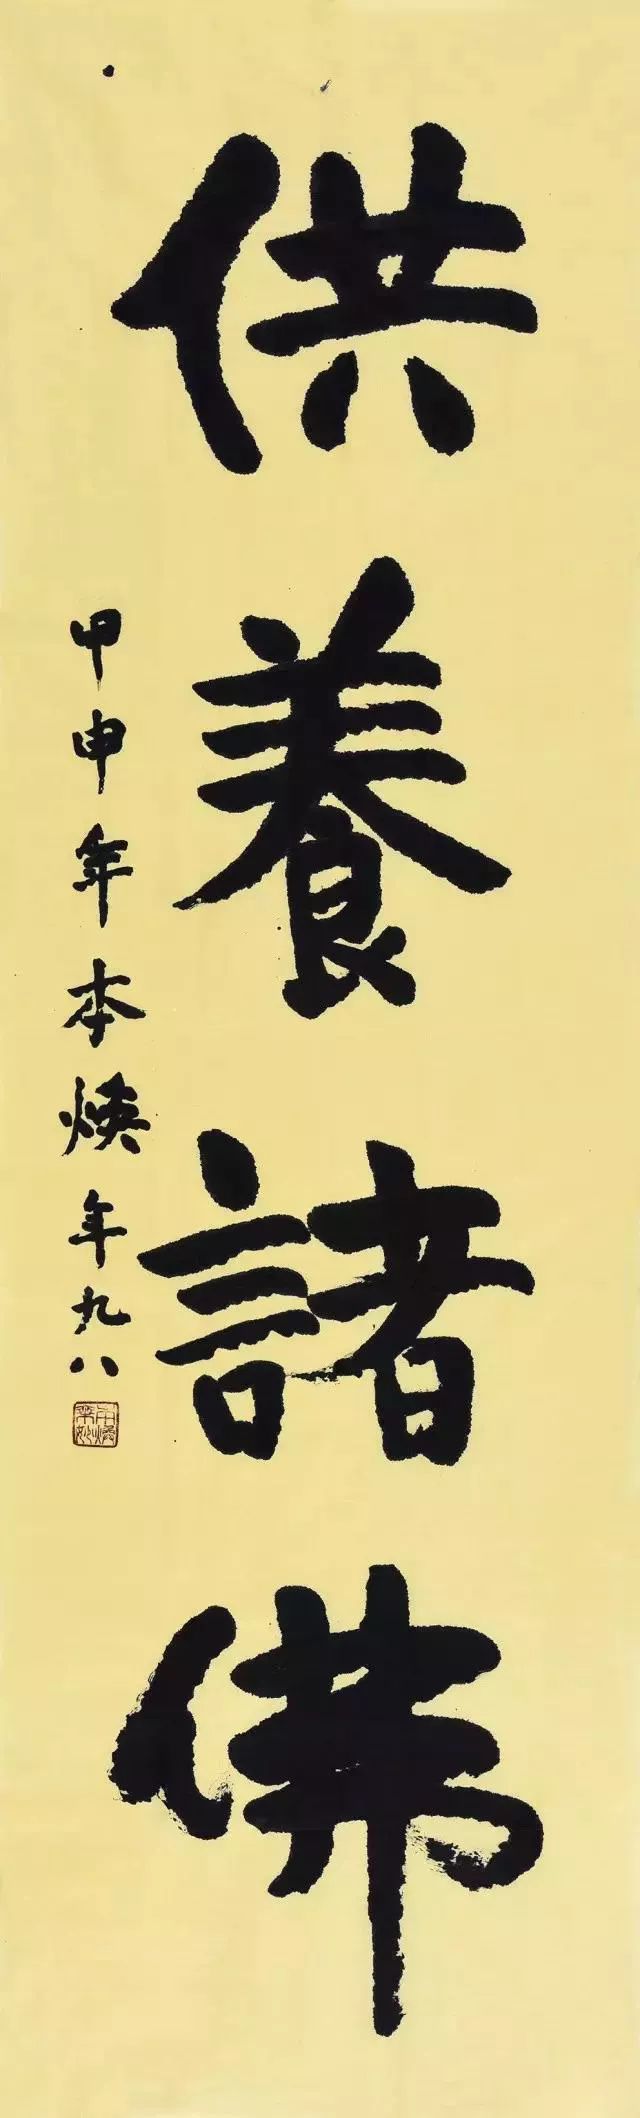 供養諸佛
甲申年本煥年九八